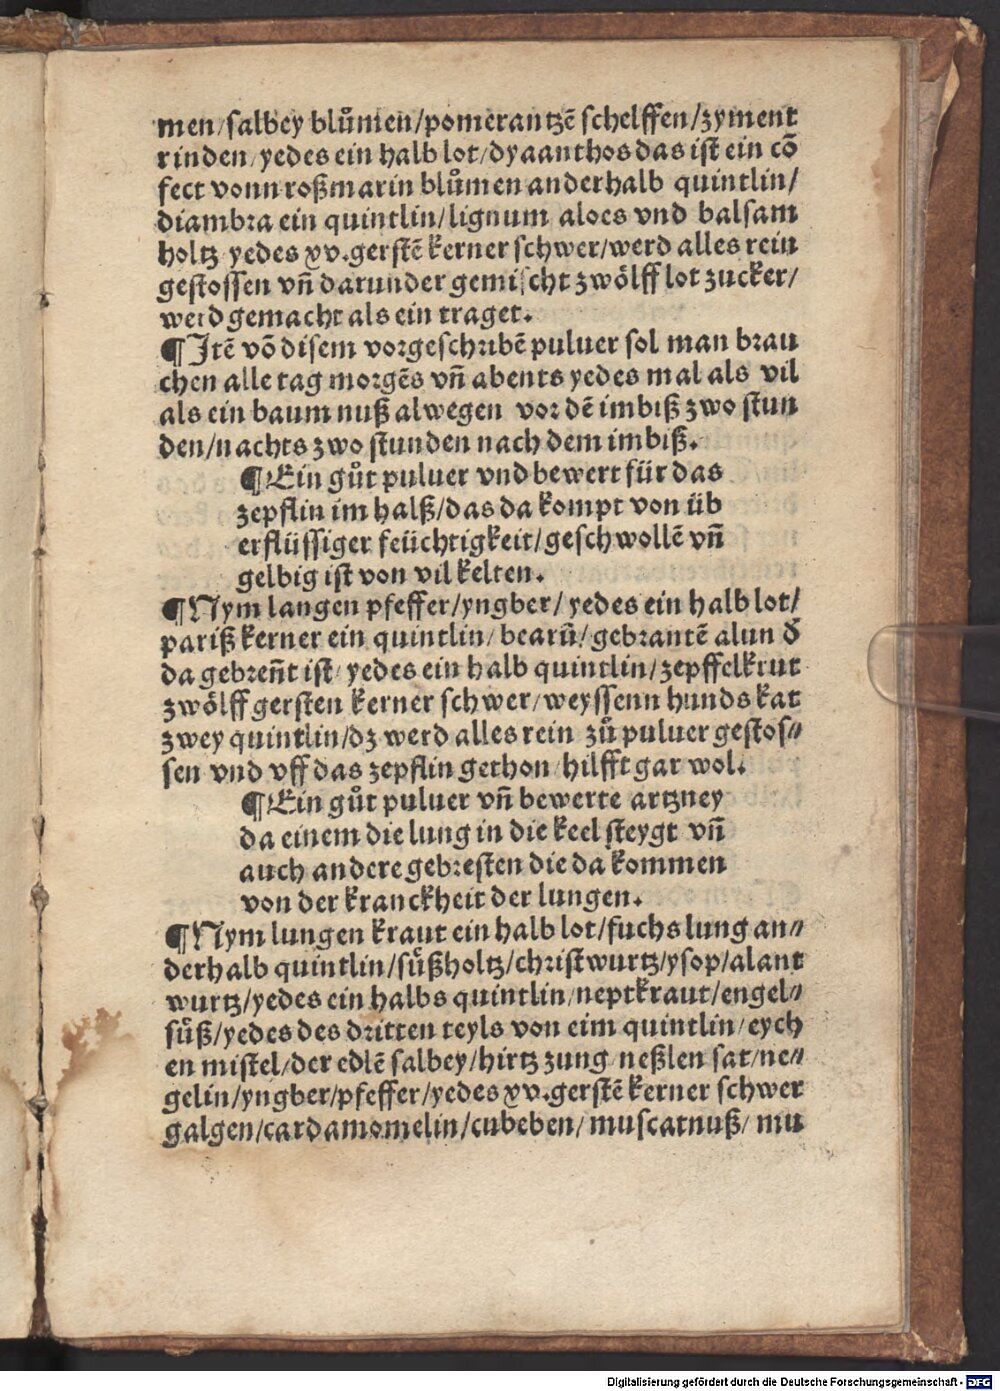 men/salbey blůmen/pomerantzē schelffen/zyment
rinden/yedes ein halb lot/dyaanthos das ist ein cō
fect vonn roßmarin blůmen anderhalb quintlin/
diambra ein quintlin/lignum aloes vnd balsam
holtz yedes xv.gerstē kerner schwer/werd alles rein
gestossen vñ darunder gemischt zwölff lot zucker/
werd gemacht als ein traget.
¶Itē vō disem vorgeschribē puluer sol man brau
chen alle tag morgēs vñ abents yedes mal als vil
als ein baum nuß alwegen vor dē imbiß zwo stun
den/nachts zwo stunden nach dem imbiß.
¶Ein gůt puluer vnd bewert für das
zepflin im halß/das da kompt von üb
erflüssiger feüchtigkeit/geschwollē vñ
gelbig ist von vil kelten.
¶Nym langen pfeffer/yngber/yedes ein halb lot/
pariß kerner ein quintlin/bearū/gebrantē alun ď
da gebreñt ist/yedes ein halb quintlin/zepffelkrut
zwölff gersten kerner schwer/weyssenn hunds kat
zwey quintlin/dz werd alles rein zů puluer gestos⸗
sen vnd vff das zepflin gethon/hilfft gar wol.
¶Ein gůt puluer vñ bewerte artzney
da einem die lung in die keel steygt vñ
auch andere gebresten die da kommen
von der kranckheit der lungen.
¶Nym lungen kraut ein halb lot/fuchs lung an⸗
derhalb quintlin/sůßholtz/christwurtz/ysop/alant
wurtz/yedes ein halbs quintlin/neptkraut/engel⸗
sůß/yedes des dritten teyls von eim quintlin/eych
en mistel/der edlē salbey/hirtz zung/neßlen sat/ne⸗
gelin/yngber/pfeffer/yedes xv.gerstē kerner schwer
galgen/cardamomelin/cubeben/muscatnuß/mu
Digitalisierung gefördert durch die Deutsche Forschungsgemeinschaft - DFG